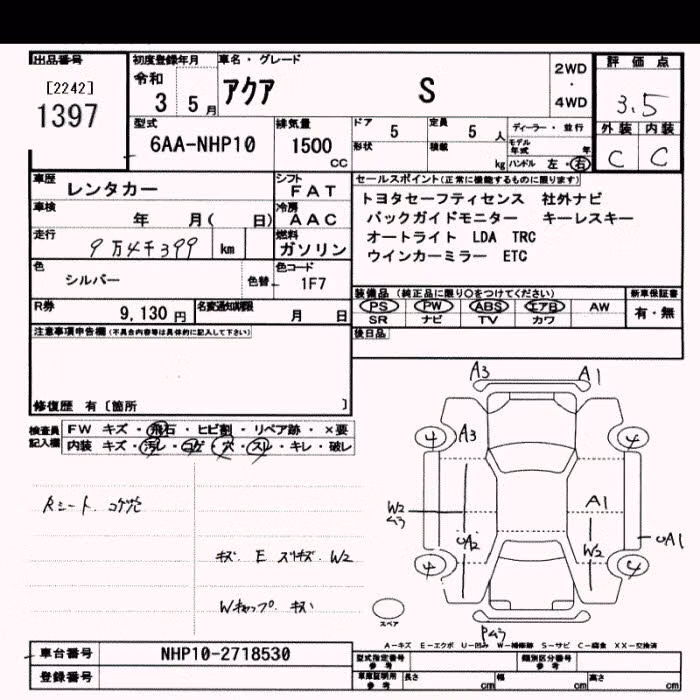 出品番号
[2242]
1397
初度登録年月
令和
3 5月
車名・グレード
アクア S
2WD
・
4WD
評価点
3.5
外装 内装
C C
型式
6AA-NHP10
排気量
1500
CC
ドア 5
定員 5 人
ディーラー・並行
形状
積載 kg
モデル年式 年
ハンドル 左・右
車歴 レンタカー
シフト FAT
車検 年 月( 日)
冷房 AAC
走行 9万4千399 km
燃料 ガソリン
色 シルバー
色替
色コード 1F7
R券 9,130円
名変通知期限 月 日
セールスポイント(正常に機能するものに限ります)
トヨタセーフティセンス 社外ナビ
バックガイドモニター キーレスキー
オートライト LDA TRC
ウインカーミラー ETC
装備品(純正品に限り○をつけてください)
新車保証書
PS PW ABS エアB AW
有・無
SR ナビ TV カワ
後日品
注意事項申告欄(不具合内容等は具体的に記入して下さい)
修復歴 有〔箇所 〕
検査員記入欄
FW キズ・飛石・ヒビ割・リペア跡・×要
内装 キズ・汚レ・コゲ・穴・スレ・キレ・破レ
Rシート コゲ穴
キズ E スリキズ W2
Wキャップ キズ
A3 A1
4 A3 4
W2
A1
A2
W2
A1
4 4
スペア
A-キズ E-エクボ U-凹み W-補修跡 S-サビ C-腐食 XX-交換済
車台番号 NHP10-2718530
登録番号
型式指定番号参考
類別区分番号参考
車庫証明用参考
長さ cm 幅 cm 高さ cm